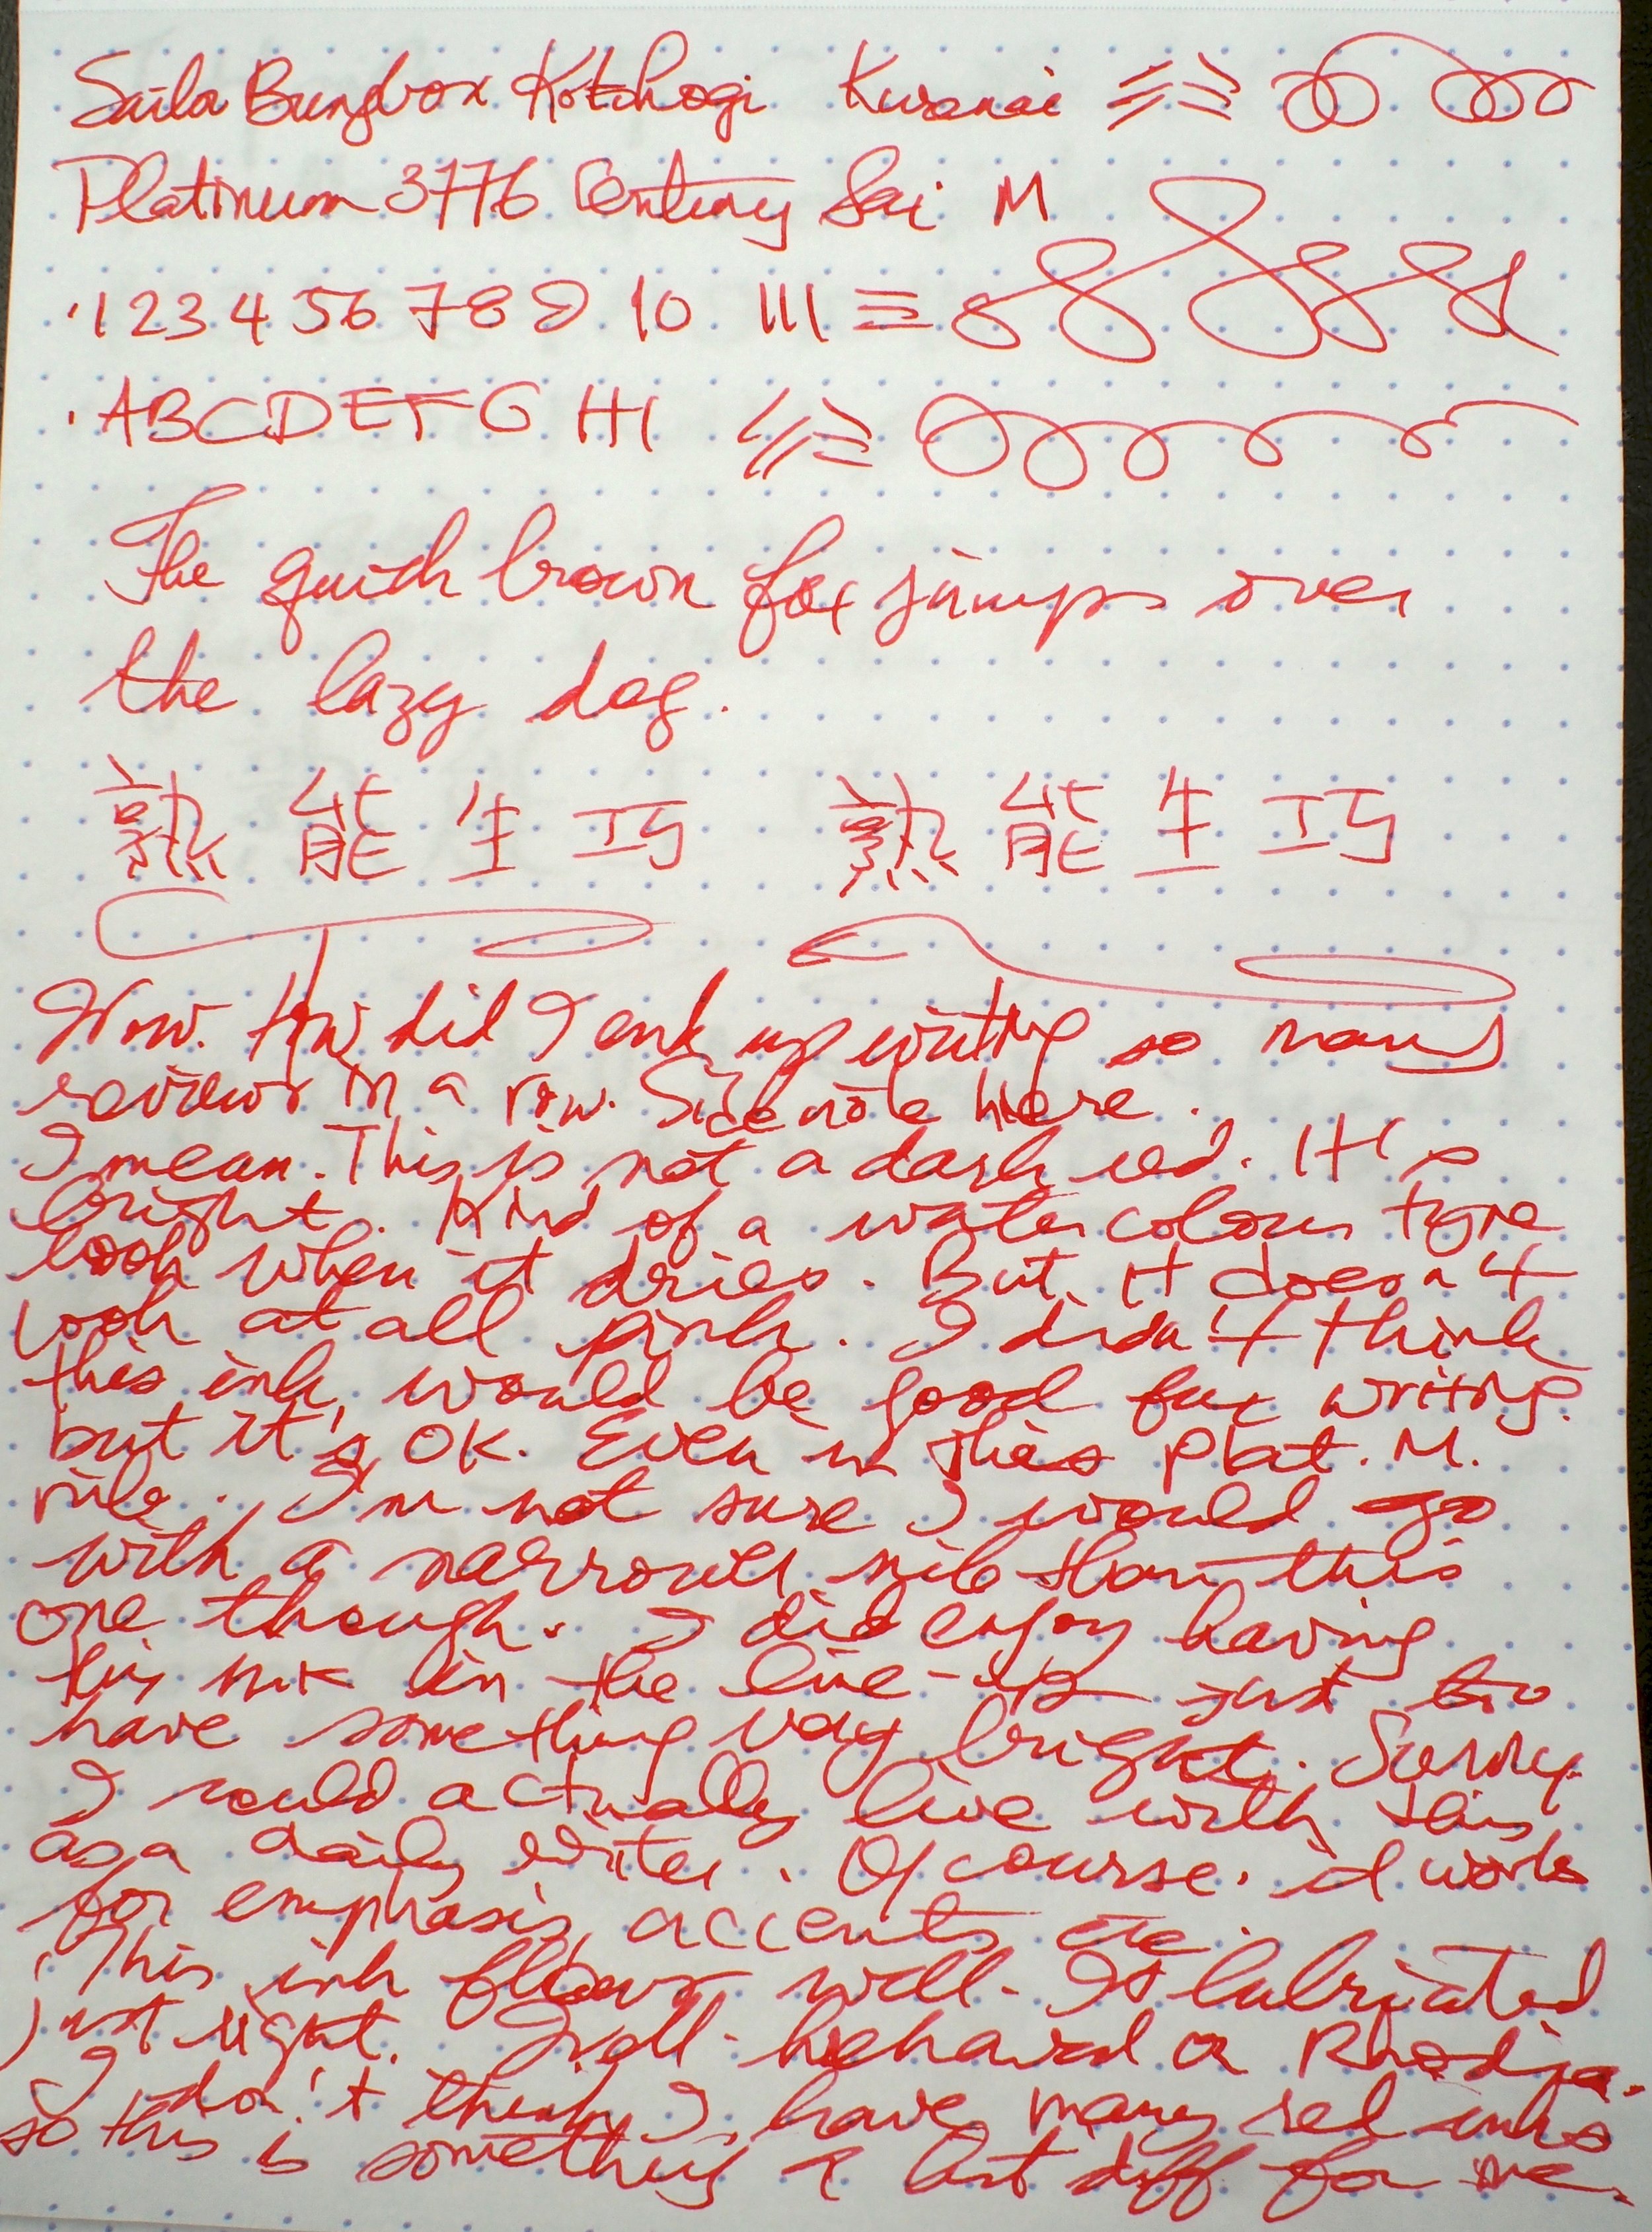 Sailor Bungbox Kotohogi Kurenai
Platinum 3776 Century Sai M
1 2 3 4 5 6 7 8 9 10
A B C D E F G H I
The quick brown fox jumps over
the lazy dog.
熟能生巧 熟能生巧
Wow. How did I end up writing so many
reviews in a row. Side note here.
I mean. This is not a dark red. It is
bright. Kind of a water colour type
look when it dries. But it doesn't
look at all pink. I didn't think
this ink would be good for writing.
but it's OK. Even in this Plat. M.
nib. I'm not sure I would go
with a narrower nib than this
one though. I did enjoy having
this ink in the line-up just to
have something very bright.
I could actually live with this
as a daily writer. Of course. it works
for emphasis, accents etc.
This ink flows well. It lubricated
just right. Well-behaved on Rhodia.
I don't think I have many red inks
so this is something a bit diff for me.